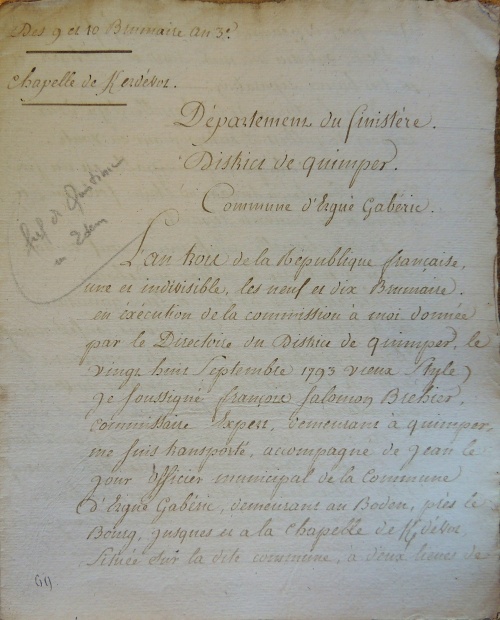 Des 9 et 10 Brumaire an 3e.
Chapelle de Kerdévot.
Département du finistère.
District de quimper.
Commune d'Ergué Gabéric.
fief de
en Eden
L'an trois de la République française,
une et indivisible, les neuf et dix Brumaire.
en exécution de la commission à moi donnée
par le Directoire du District de quimper, le
vingt huit Septembre 1793 vieux Style,
je soussigné françois Salomon Bréhier,
commissaire Expert, demeurant à quimper,
me suis transporté, accompagné de jean le
jour officier municipal de la Commune
d'Ergué Gabéric, demeurant au Boden, près le
Bourg, jusques et a la Chapelle de Kdévot,
Située sur la dite commune, à deux lieues de